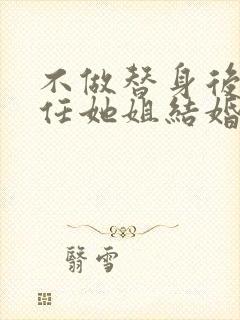 不做替身後
任她姐結婚
翳雪